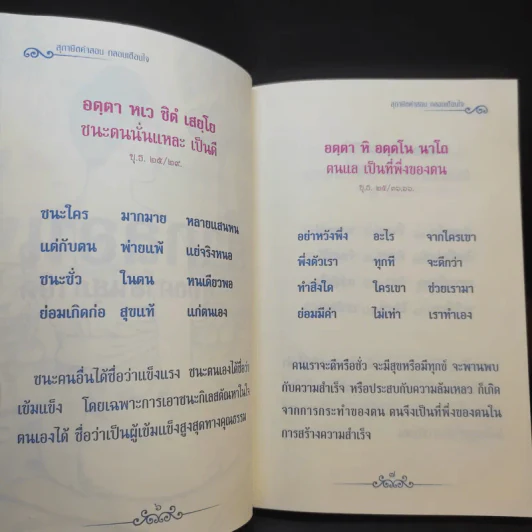 สุภาษิตคำสอน กลอนเตือนใจ
อตฺตา หเว ชิตํ เสยฺโย
ชนะตนนั่นแหละ เป็นดี
ขุ.ธ. ๒๕/๒๙.
ชนะใคร มากมาย หลายแสนหน
แต่กับตน พ่ายแพ้ แย่จริงหนอ
ชนะชั่ว ในตน หนเดียวพอ
ย่อมเกิดก่อ สุขแท้ แก่ตนเอง
ชนะคนอื่นได้ชื่อว่าแข็งแรง ชนะตนเองได้ชื่อว่า
เข้มแข็ง โดยเฉพาะการเอาชนะกิเลสตัณหาในใจ
ตนเองได้ ชื่อว่าเป็นผู้เข้มแข็งสูงสุดทางคุณธรรม
๖
สุภาษิตคำสอน กลอนเตือนใจ
อตฺตา หิ อตฺตโน นาโถ
ตนแล เป็นที่พึ่งของตน
ขุ.ธ. ๒๕/
อย่าหวังพึ่ง อะไร จากใครเขา
พึ่งตัวเรา ทุกที จะดีกว่า
ทำสิ่งใด ใครเขา ช่วยเรามา
ย่อมมีค่า ไม่เท่า เราทำเอง
คนเราจะดีหรือชั่ว จะมีสุขหรือมีทุกข์ จะพานพบ
กับความสำเร็จ หรือประสบกับความล้มเหลว ก็เกิด
จากการกระทำของตน ตนจึงเป็นที่พึ่งของตนใน
การสร้างความสำเร็จ
๗